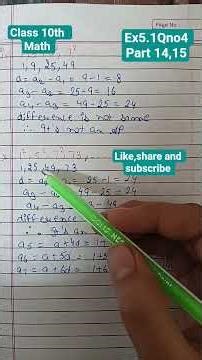 Class 10th
Math
Ex5.1Qno4
Part 14,15
1, 9, 25, 49
d = a₂ - a₁ = 9-1 = 8
a₃ - a₂ = 25-9 = 16
a₄ - a₃ = 49-25 = 24
difference is not same
∴ It is not an AP
Like,share and
subscribe
1, 25, 49, 73
d = a₂ 25-1 = 24
a₃ - 49-25 = 24
a₄ - a₃ - 49
difference
∴ It is an
a₅ = a+4d = 1+
a₆ = a+5d = 1+
a₇ = a+6d = 1+6